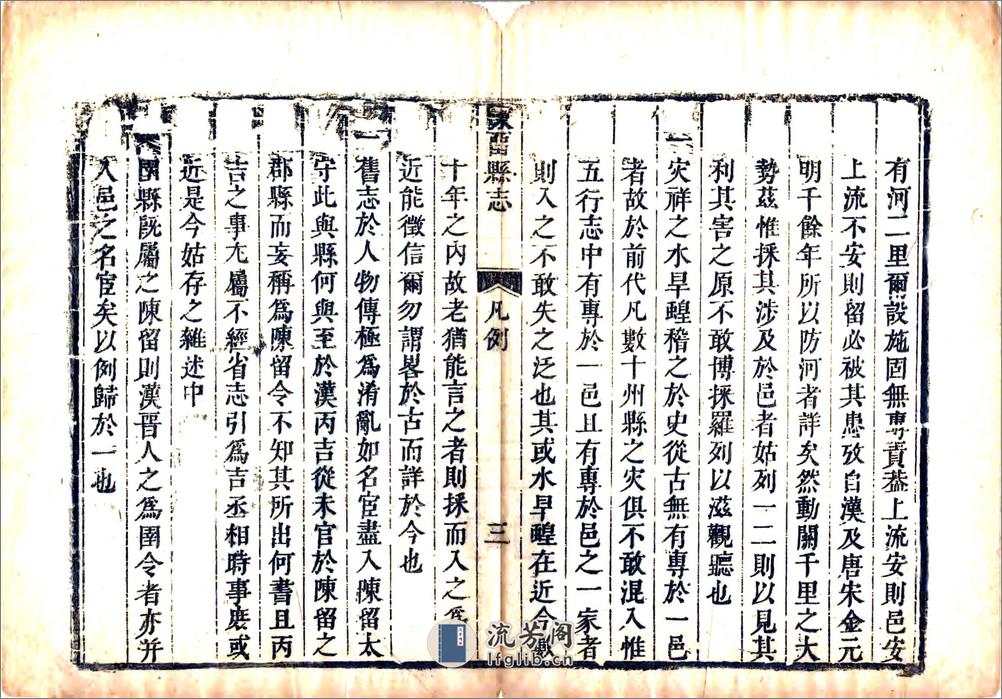 有河二里爾設施固無專責葢上流安則邑安
上流不安則留必被其患攷自漢及唐宋金元
明千餘年所以防河者詳矣然動關千里之大
勢茲惟採其涉及於邑者姑列一二則以見其
利其害之原不敢博採羅列以滋觀聽也
一災祥之水旱蝗稽之於史從古無有專於一邑
者故於前代凡數十州縣之灾俱不敢混入惟
五行志中有專於一邑且有專於邑之一家者
則入之不敢失之泛也其或水旱蝗在近今數
陳畱縣志
凡例
三
十年之內故老猶能言之者則採而入之爲
近能徵信爾勿謂畧於古而詳於今也
一舊志於人物傳極爲淆亂如名宦盡入陳留太
守此與縣何與至於漢丙吉從未官於陳留之
郡縣而妄稱爲陳留令不知其所出何書且丙
吉之事尤屬不經省志引爲吉丞相時事庶或
近是今姑存之雜述中
一圉縣旣屬之陳留則漢晉人之爲圉令者亦并
入邑之名宦矣以例歸於一也
流芳阁
lfglib.cn